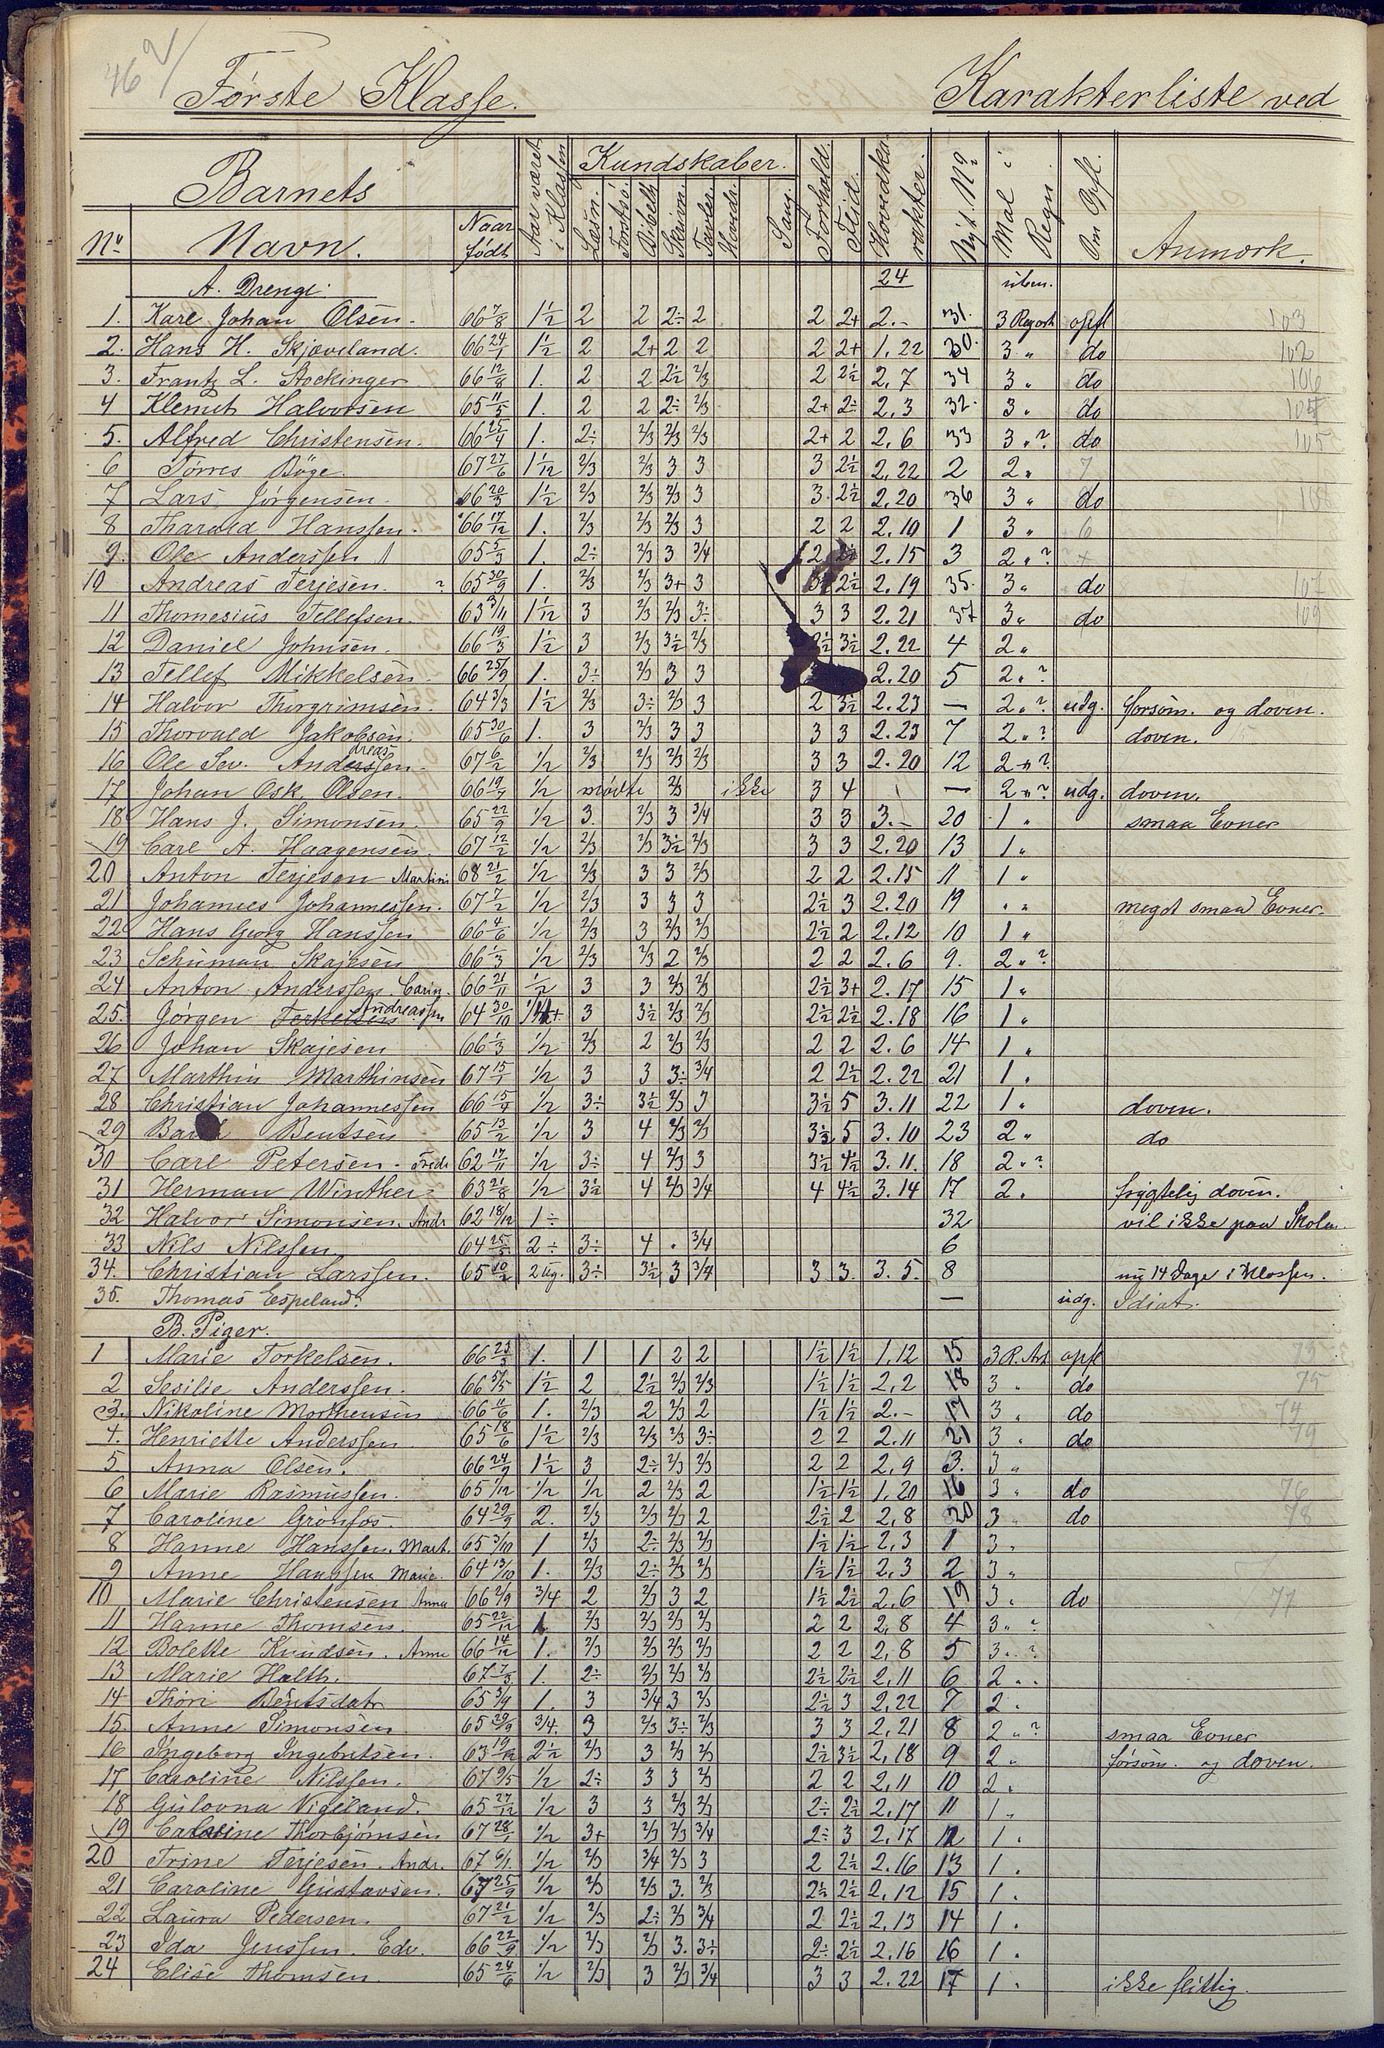 46
Første Klasse. Karakterliste ved
Barnets Aar været i Klassen Kundskaber. Forhold. Flid. Hovedkarakter. Nyt No Maal i Regn. Om Opfl.
No Navn. Naar født Læsn. Forkl. Bibelh. Skrivn. Tavler. Sang Anmærk.
A. Drenge. 24
1. Karl Johan Olsen. 66 7/8 1½ 2 2 2÷ 2 2 2+ 2.- 31. 3 opfl 103
2. Hans H. Skjæveland. 66 24/1 1½ 2 2+ 2 2 2 2+ 1.22 30. 3 " do 102
3. Frantz L. Stockinger 66 12/8 1. 2 2 2½ 2/3 2 2½ 2,7 34 3 " do 106
4 Klemet Halvorsen 65 11/5 1. 2 2 2÷ 2/3 2+ 2÷ 2,3 32. 3 " do 104
5. Alfred Christensen. 66 25/4 1. 2÷ 2/3 2/3 2/3 2+ 2 2.6 33 3 " ? do 105
6 Torres Bøge. 67 27/6 1 1/12 2/3 2/3 3 3 3 2½ 2.22 2 2 " 7
7 Lars Jörgensen. 66 20/3 1½ 2/3 2/3 2/3 3 3. 2½ 2.20 36 3 " do 108
8 Tharald Hanssen. 66 17/12 1. 2/3 2/3 2/3 3 2 2 2.10 1 3 " 6
9. Ole Anderssen 65 5/3 1. 2÷ 2/3 3 3/4 2 2÷ 2.15 3 2 " ? +
10 Andreas Terjesen. ? 65 30/9 1. 2/3 2/3 3+ 3 2½ 2.19 35. 3 " do 107
11 Thomesius Tellefsen. 63 3/11 1 1/12 3 2/3 2/3 3÷ 3 3 2.21 37 3 " do 109
12 Daniel Johnsen. 66 19/3 1½ 3 2/3 3½ 2/3 2½ 3½ 2.22 4 2 "
13 Tellef Mikkelsen. 66 25/9 1. 3÷ 2/3 3 3 2.20 5 2 " ?
14 Halvor Thorgrimsen. 64 3/3 1½ 2/3 3÷ 2/3 3 2 3½ 2.23 — 2 " ? udg. forsøm. og doven.
15 Thorvald Jakobsen. 65 30/6 1. 3 2/3 3 3 3 3 2.23 7 2 " ? doven.
16 Ole Sev. Andreassen. 67 6/2 1/2 2/3 2/3 2/3 2/3 3 3 2.20 12 2 " ?
17 Johan Osk. Olsen. 66 19/7 1/2 mødte 2/3 ikke 3 4 — 2 " ? udg. doven.
18 Hans J. Simonsen. 65 22/9 1/2 3. 2/3 3 3/4 3 3 3.- 20 1 " smaa Evner
19 Carl A. Haagensen. 67 12/2 1/2 2/3 2/3 3½ 2/3 3 3 2.20 13 1 "
20 Anton Terjesen Martini 68 21/2 1/2 2/3 3 3 2/3 2 2 2.15 11 1 "
21 Johannes Johannessen. 67 7/2 1/2 2/3 3 3 3 2½ 3 2.20 19 " " meget smaa Evner.
22 Hans Georg Hanssen 66 4/6 1/2 2/3 3 2/3 2/3 2½ 2 2.12 10 1 "
23 Schuman Skajesen 66 1/3 1/2 2/3 2/3 2 2/3 2 2 2.6 9. 2 " ?
24 Anton Anderssen Carin. 66 21/11 1/2 3 3 2/3 2/3 2½ 3+ 2.17 15 1 "
25. Jørgen Torkelsen Andreassen 64 30/10 3 3½ 2/3 2/3 2½ 2½ 2.18 16 1 "
26 Johan Skajesen 66 1/3 1/2 2/3 2 2/3 2/3 2 2 2.6 14 1 "
27 Marthin Marthinsen 67 15/1 1/2 3 3 3÷ 3/4 2 2½ 2.22 21 1 "
28 Christian Johannessen 66 15/4 1/2 3÷ 3½ 2/3 3 3½ 5 3.11 22 1 " doven.
29 Bentsen 65 13/2 1/2 3 4 2/3 2/3 3½ 5 3.10 23 2 " do
30 Carl Petersen. Fredr 62 17/11 1/2 3÷ 4 2/3 3 3½ 4½ 3.11. 18 2 " ?
31 Herman Winther 63 21/8 1/2 3½ 4 2/3 3/4 4 4½ 3.14 17 2. frygtelig doven.
32 Halvor Simonsen. Andr 62 18/12 1÷ 32 vil ikke paa Skolen.
33 Nils Nilssen 64 25/5 2÷ 3÷ 4 . 3/4 6
34. Christian Larssen. 65 10/2 2 ug. 3÷ 3½ 3 3/4 3 3. 3.5. 8 nu 14 Dage i Klassen.
35. Thomas Espeland. — udg. Idiot.
B. Piger.
1 Marie Torkelsen. 66 23/3 1. 1 1 2 2 1½ 1½ 1,12 15 3 R. Art opfl 73
2 Sesilie Anderssen. 66 5/5 1½ 2 2½ 2/3 2/3 1½ 1½ 2,2 18 3 " do 75
3. Nikoline Mortensen 66 11/6 1. 2/3 2 2/3 2 1½ 1½ 2.- 17 3 " do 74
4. Henriette Anderssen. 65 18/6 1½ 2/3 2/3 2/3 3÷ 2 2 2.11 21 3 " do 79
5 Anna Olsen. 66 24/9 1½ 3 2÷ 2/3 2/3 2 2 2,9 3. 3 "
6 Marie Rasmussen. 65 1/12 1/2 1/2 2 2/3 2 1½ 1½ 1.20 16 3 " do 76
7 Caroline Grönfos. 64 29/9 2. 2/3 2/3 2/3 2 2½ 2 2,8 20 3 " do 78
8 Hanne Hanssen. Marth. 65 3/10 1 2/3 2÷ 2/3 2/3 1½ 1½ 2,3 1 3 "
9 Anne Hanssen Marie. 64 13/10 1. 2/3 2÷ 2/3 2/3 1½ 1½ 2,3 2 3 "
10 Marie Christensen Anna 66 2/9 3/4 2 2/3 3 2 1½ 2½ 2,6 19 3 " do 77
11 Hanne Thomsen. 65 22/12 1. 2/3 2/3 2/3 2/3 2 2 2,8 4 3 " ?
12 Bolette Knudsen. Anne 66 14/12 1. 2/3 2/3 2/3 2/3 2 2 2,8 5 3 " ?
13 Marie Holth. 67 7/3 1. 2÷ 2/3 2/3 2/3 2½ 2½ 2,11 6 2 "
14 Thore Bentsdatr 65 3/9 1. 3 3/4 3 2/3 2½ 3 2,22 7 2 "
15. Anne Simonsen 65 29/9 3/4. 3 2/3 3÷ 2/3 3 3 2,21 8 2 " ? smaa Evner
16 Ingeborg Ingebretsen. 63 19/12 2½ 2/3 3 2/3 2/3 2½ 3½ 2,18 9 2 " forsøm. og doven.
17 Caroline Nilssen. 67 9/5 1/2 2÷ 3 3 2/3 2 2 2,11 10 2 "
18 Gulovna Vigeland. 65 27/12 1/2 3 3 2/3 2/3 2÷ 2½ 2,17 11 1 "
19 Caroline Thorbjørnsen 67 28/1 1/2 3+ 2/3 2/3 3/4 2÷ 3 2,17 12 1 "
20 Trine Terjesen. Andr. 67 6/1. 1/2 2/3 3/4 2/3 3 2 2½ 2.16 13 1 "
21 Caroline Gustavsen. 67 25/9 1/2 2/3 2/3 3. 2/3 2½ 2½ 2,12 15 1 "
22 Laura Pedersen. 67 21/2 1/2 2/3 2÷ 2/3 3/4 2 2½ 2,13 14 1 "
23 Ida Jenssen. Edv. 66 22/9 1/2 2/3 2/3 3. 3÷ 2÷ 2½ 2.16 16 1 "
24 Elise Thomsen. 65 24/6 1/2 2/3 3 2/3 3/4 3 3 2.22 17 1 " ikke flittig.